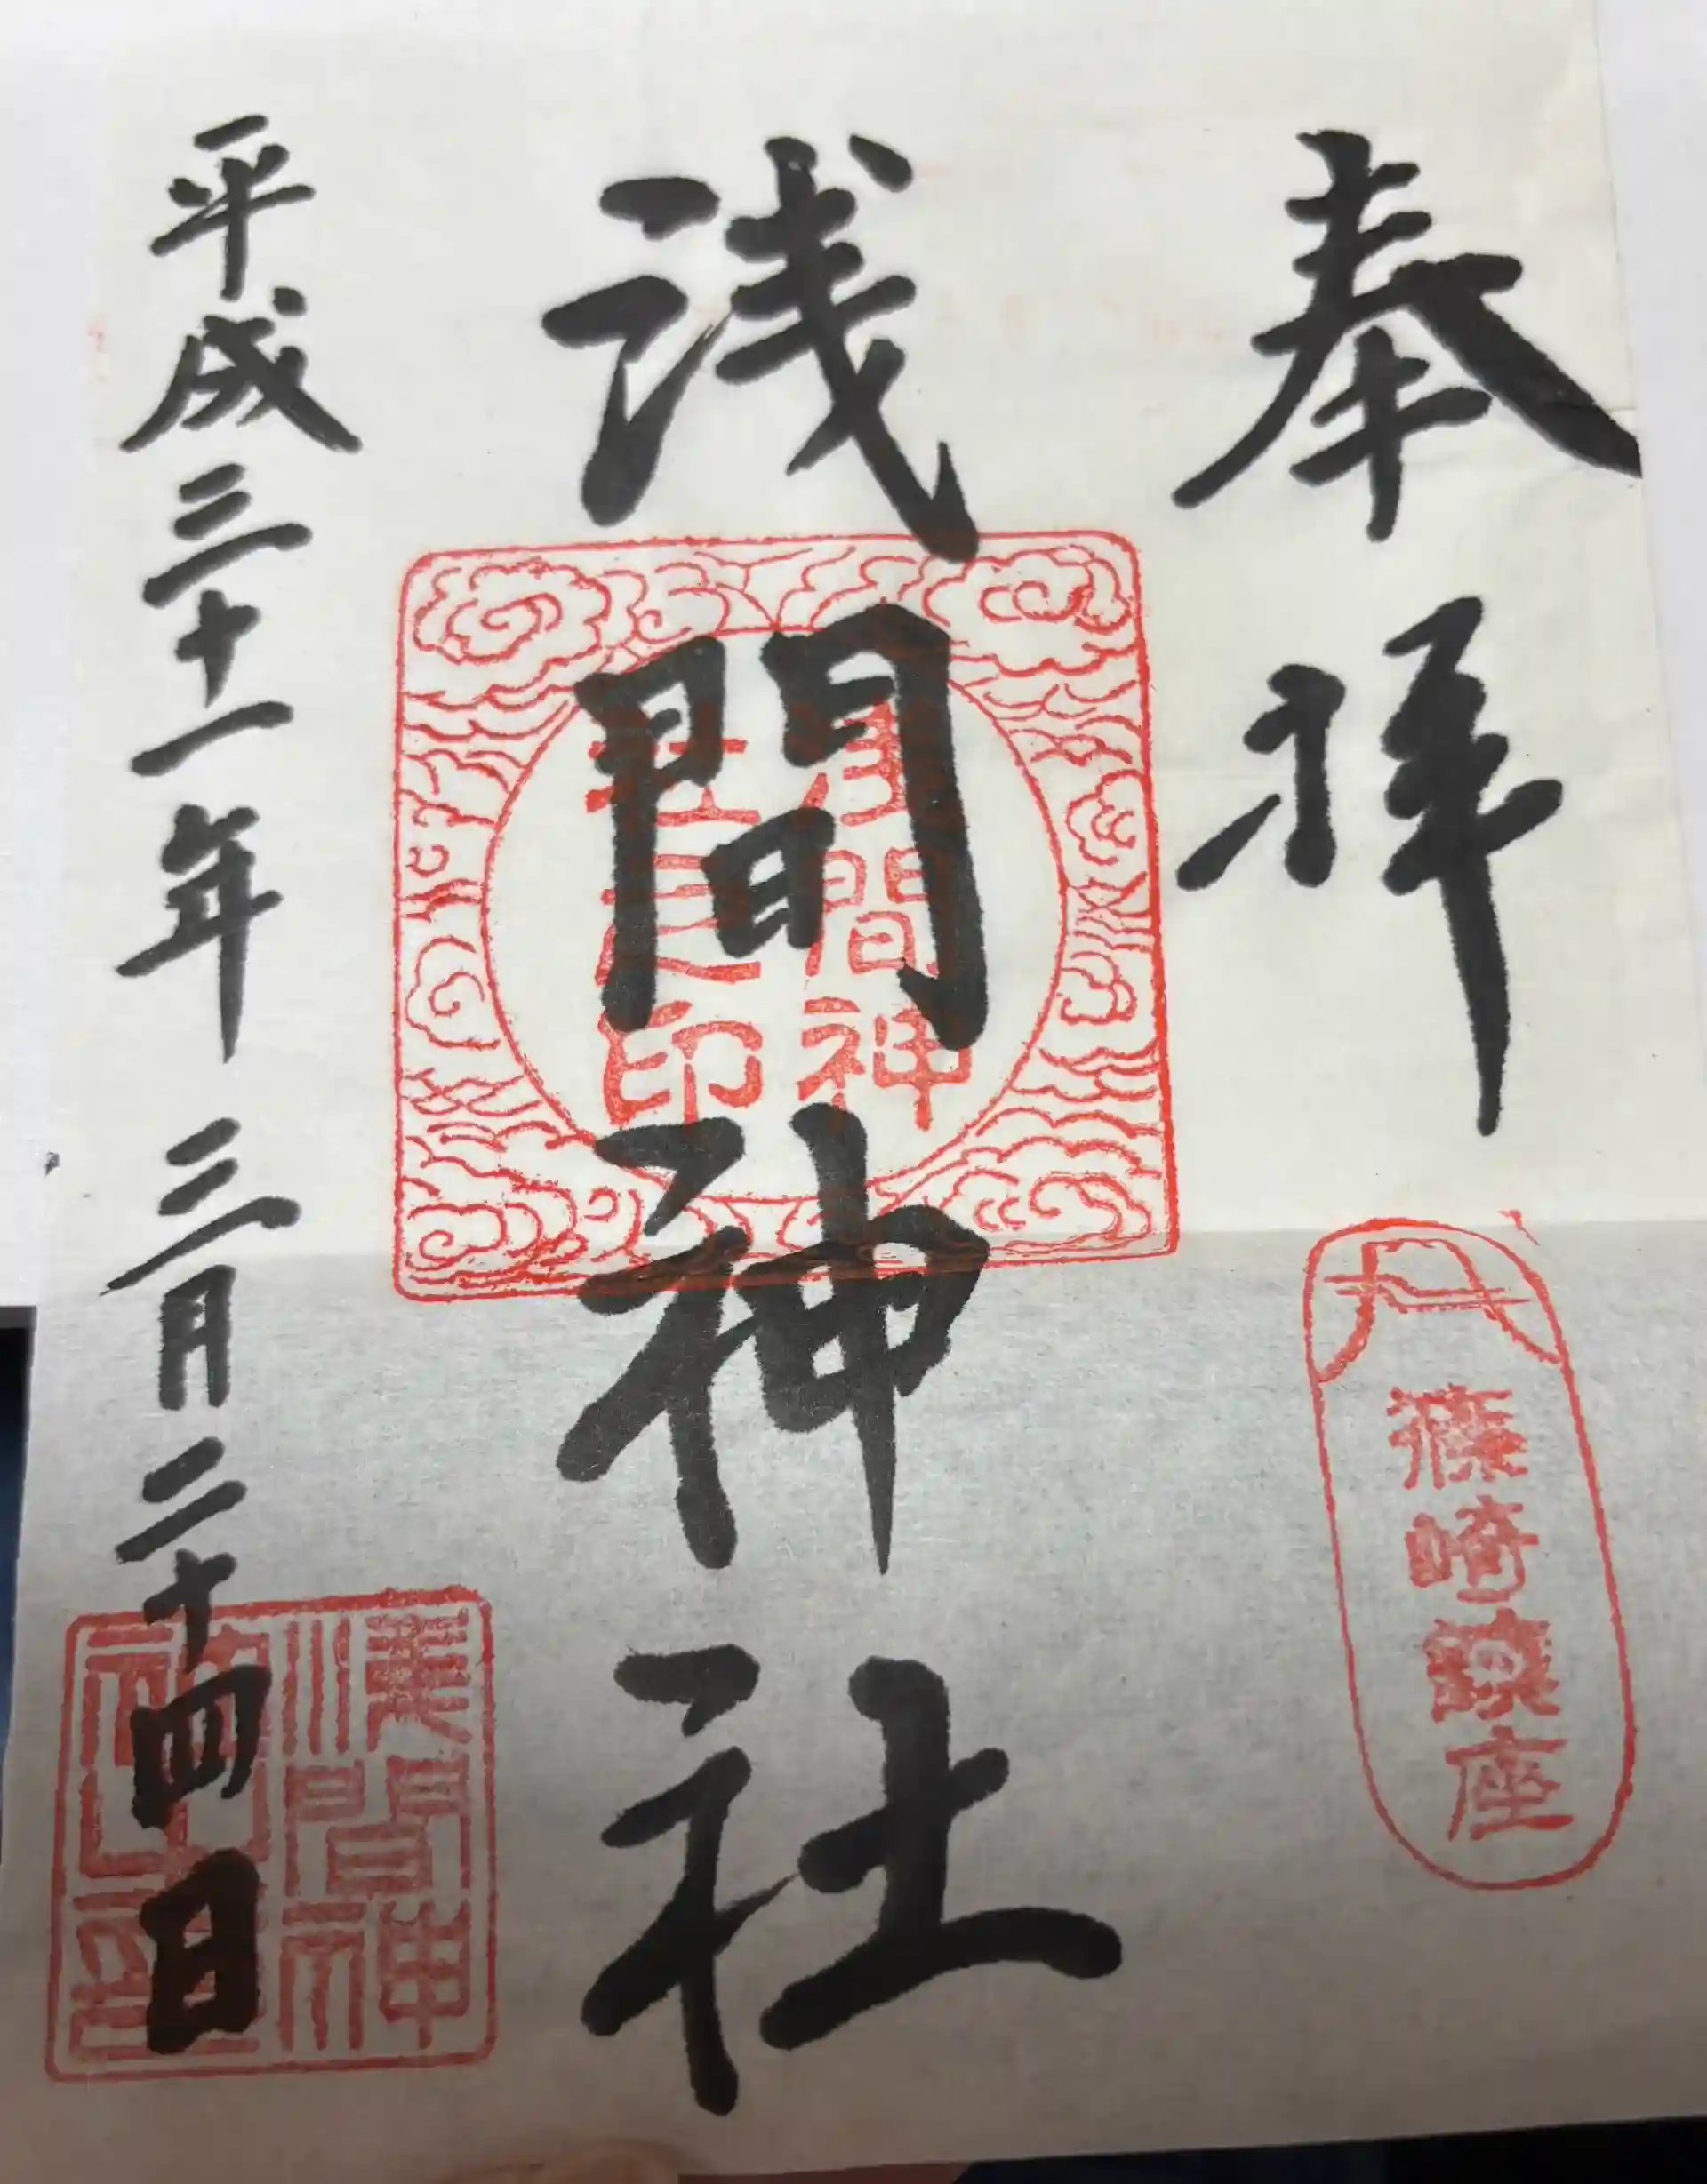 奉拝
篠崎鎮座
浅間神社
浅間神社之印
平成三十一年三月二十四日